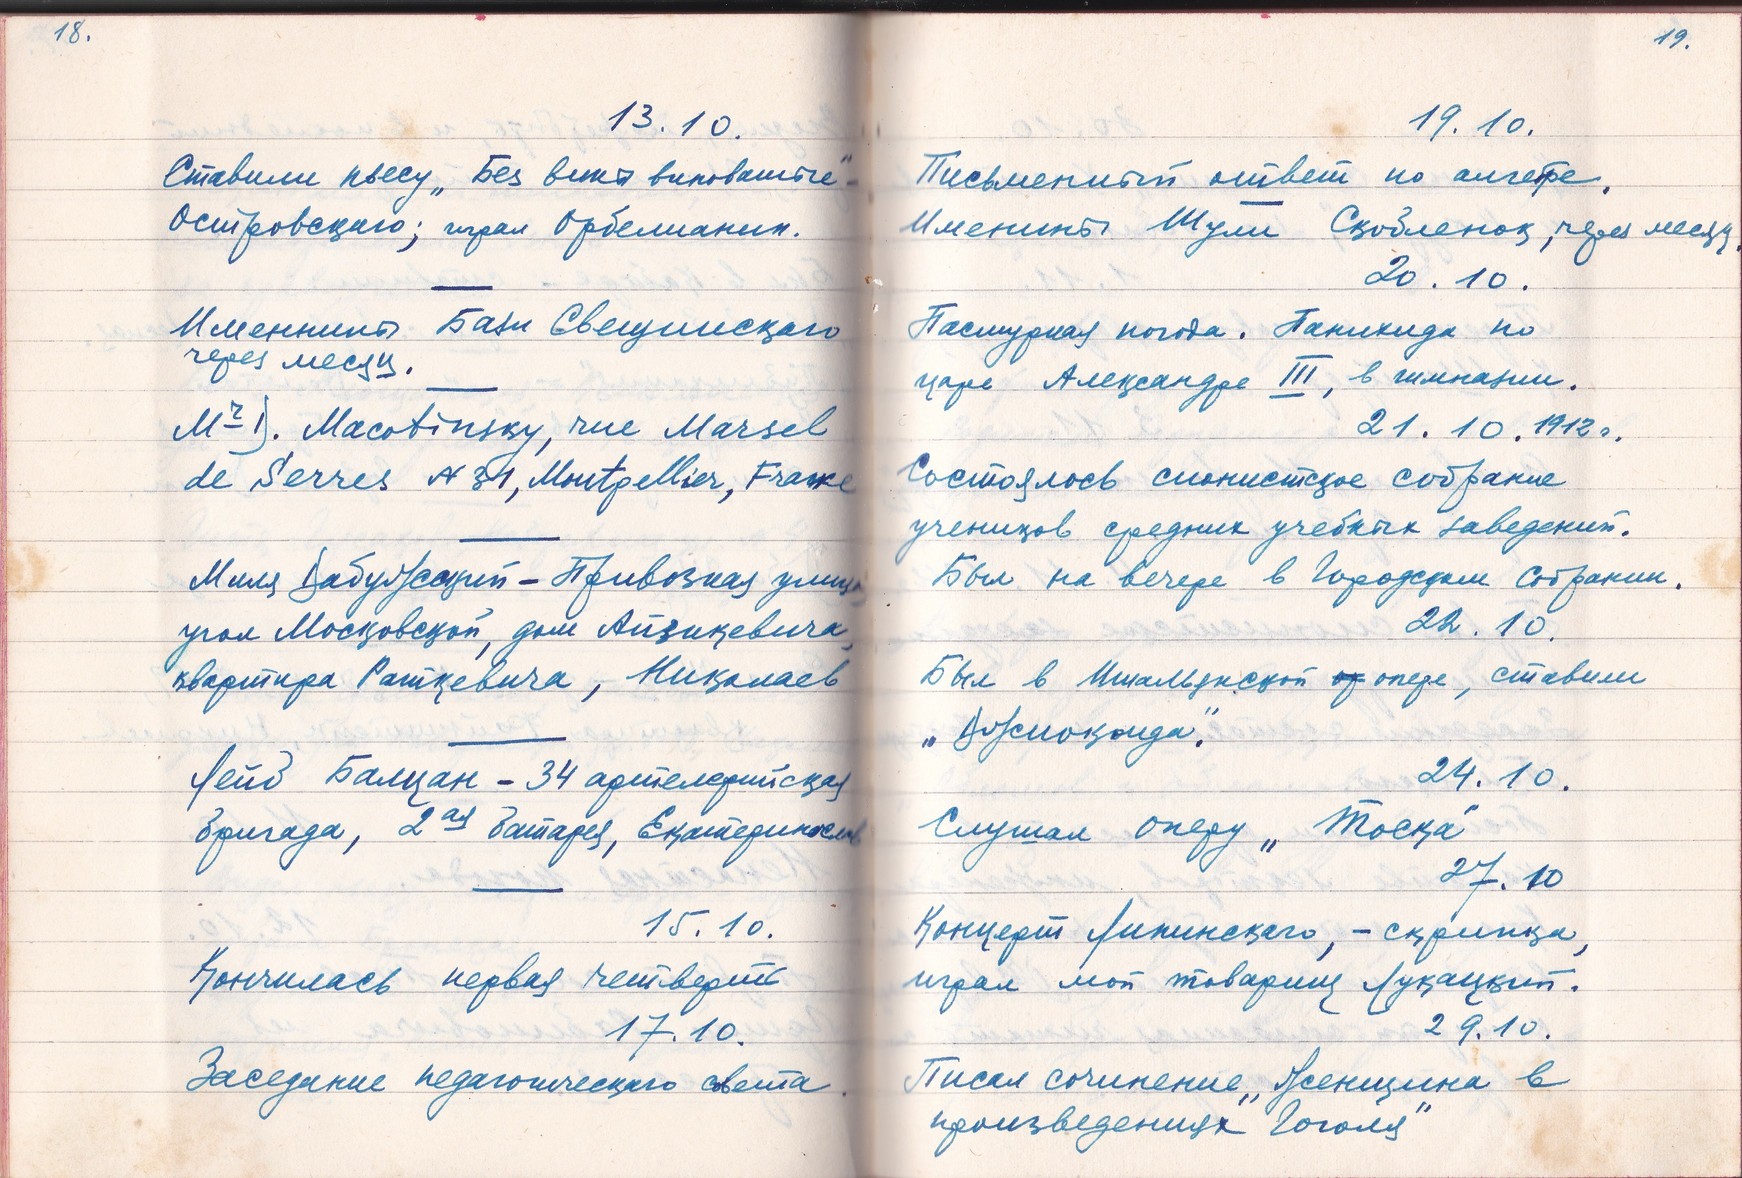 18.
13.10.
Ставили пьесу „Без вины виноватые" -
Островскаго; играл Орбелианин.
Именины Бази Свещинскаго
через месяц.
Mr D. Macotinsky, rue Marsel
de Serres № 31, Montpellier, France
Миля Дабужский - Привозная улица
угол Московской, дом Айзикевича,
квартира Раткевича, Николаев
Лейб Балцан - 34 артелерийская
бригада, 2ая батарея, Екатеринослав
15.10.
Кончилась первая четверть
17.10.
Заседание педагогическаго совета.
19.
19.10.
Письменный ответ по алгебре.
Именины Шули Скобленок, через месяц.
20.10.
Пасмурная погода. Панихида по
царе Александре III, в гимназии.
21.10.1912г.
Состоялось сионистское собрание
учеников средних учебных заведений.
Был на вечере в Городском Собрании.
22.10.
Был в Итальянской оп опере, ставили
„Джиоконда".
24.10.
Слушал оперу „Тоска"
27.10
Концерт Липинскаго, - скрипка,
играл мой товарищ Лукацкий.
29.10.
Писал сочинение „Женщина в
произведениях" Гоголя"